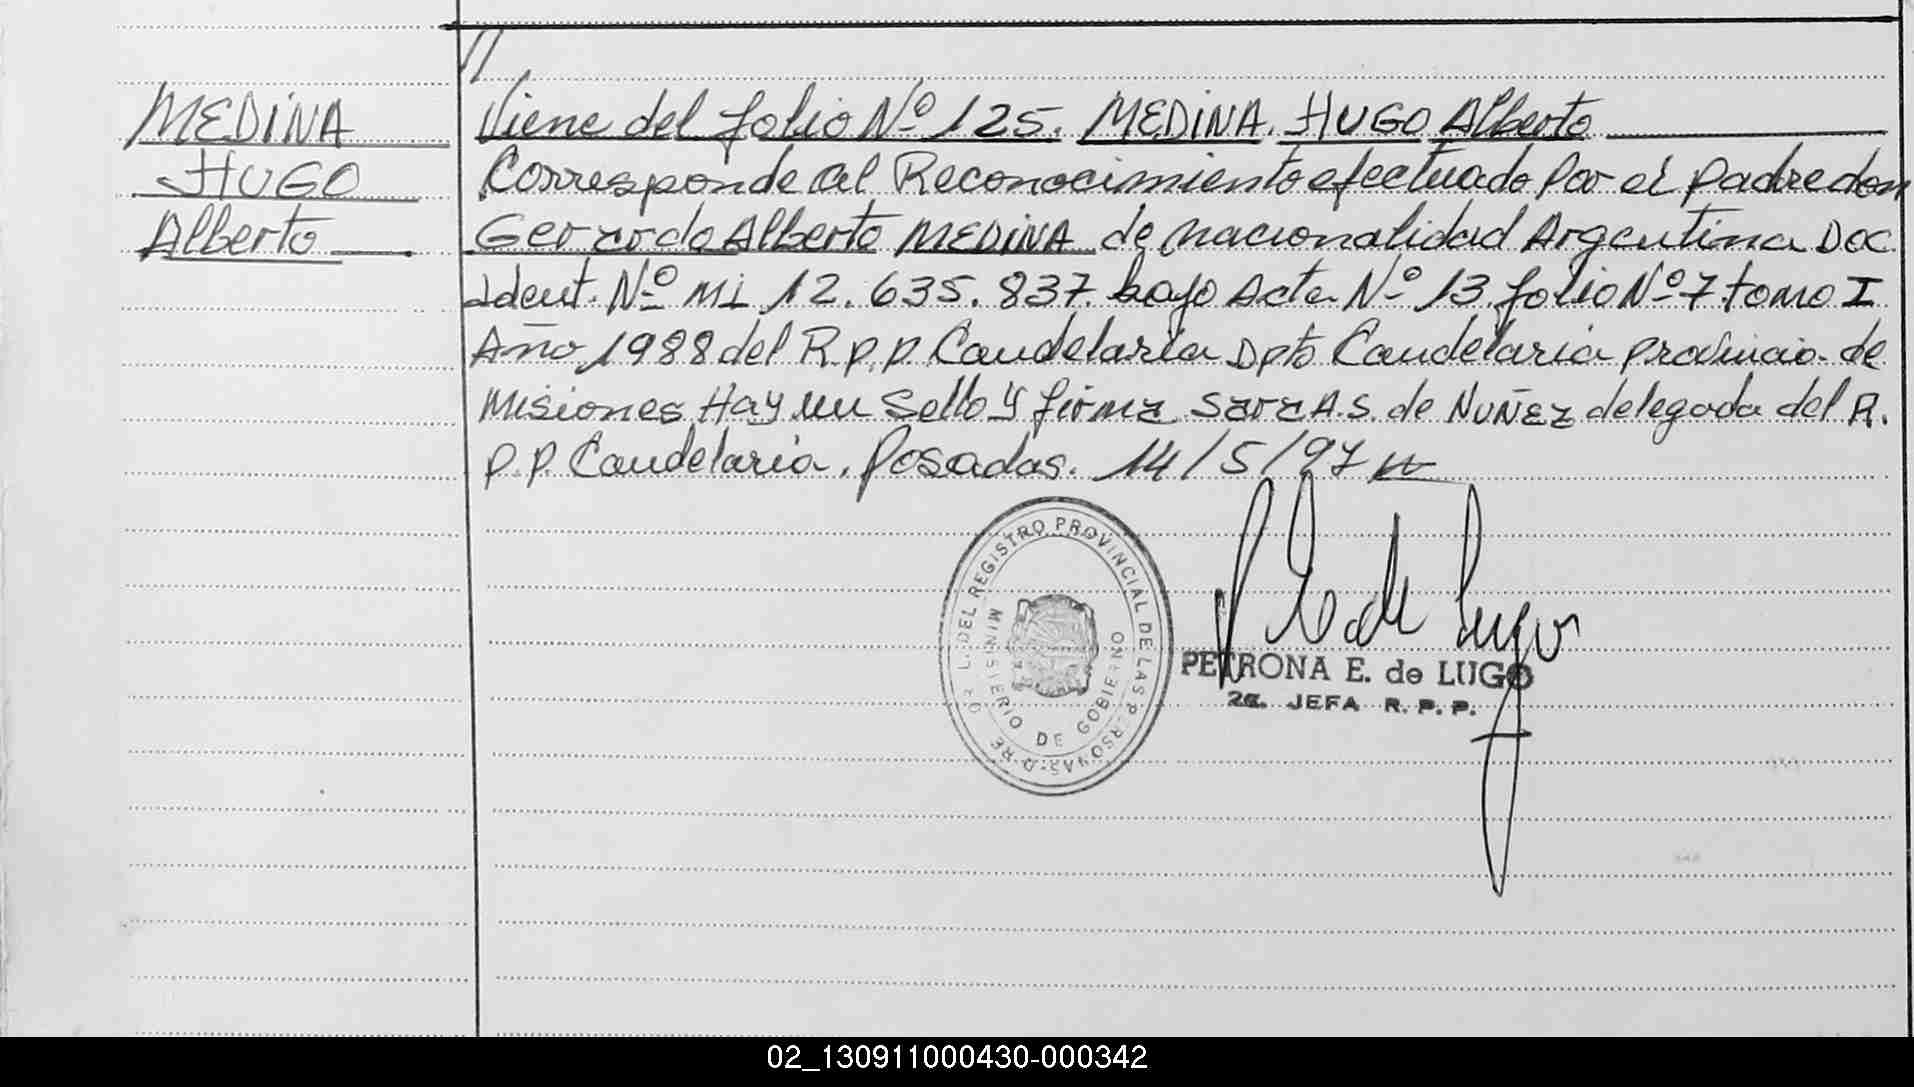 //
MEDINA
HUGO
Alberto
Viene del folio Nº 125. MEDINA, HUGO Alberto
Corresponde al Reconocimiento efectuado Por el padre don
Gerardo Alberto MEDINA de nacionalidad Argentina Doc
Ident. Nº Mi 12.635.837. bajo Acta Nº 13 folio Nº 7 tomo I
Año 1988 del R.p.p. Candelaria Dpto Candelaria provincia de
Misiones Hay un Sello y firma Sara A.S. de Nuñez delegada del R.
p.p. Candelaria. Posadas. 14/5/97
DEL REGISTRO PROVINCIAL DE LAS PERSONAS
MINISTERIO DE GOBIERNO
P E de Lugo
PETRONA E. de LUGO
2a. JEFA R. P. P.
02_130911000430-000342